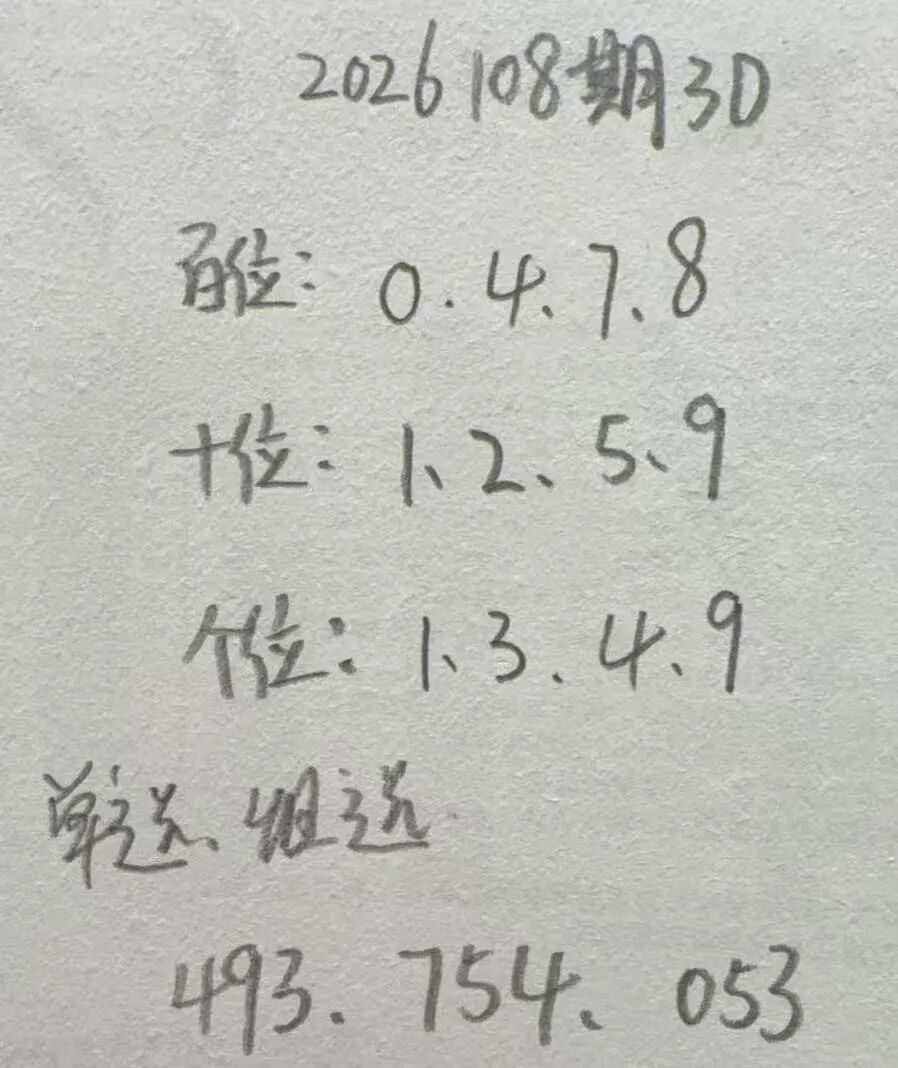 2026108期3D
百位：0.4、7、8
十位：1、2、5、9
个位：1、3.4、9
单选、组选
493.754.053